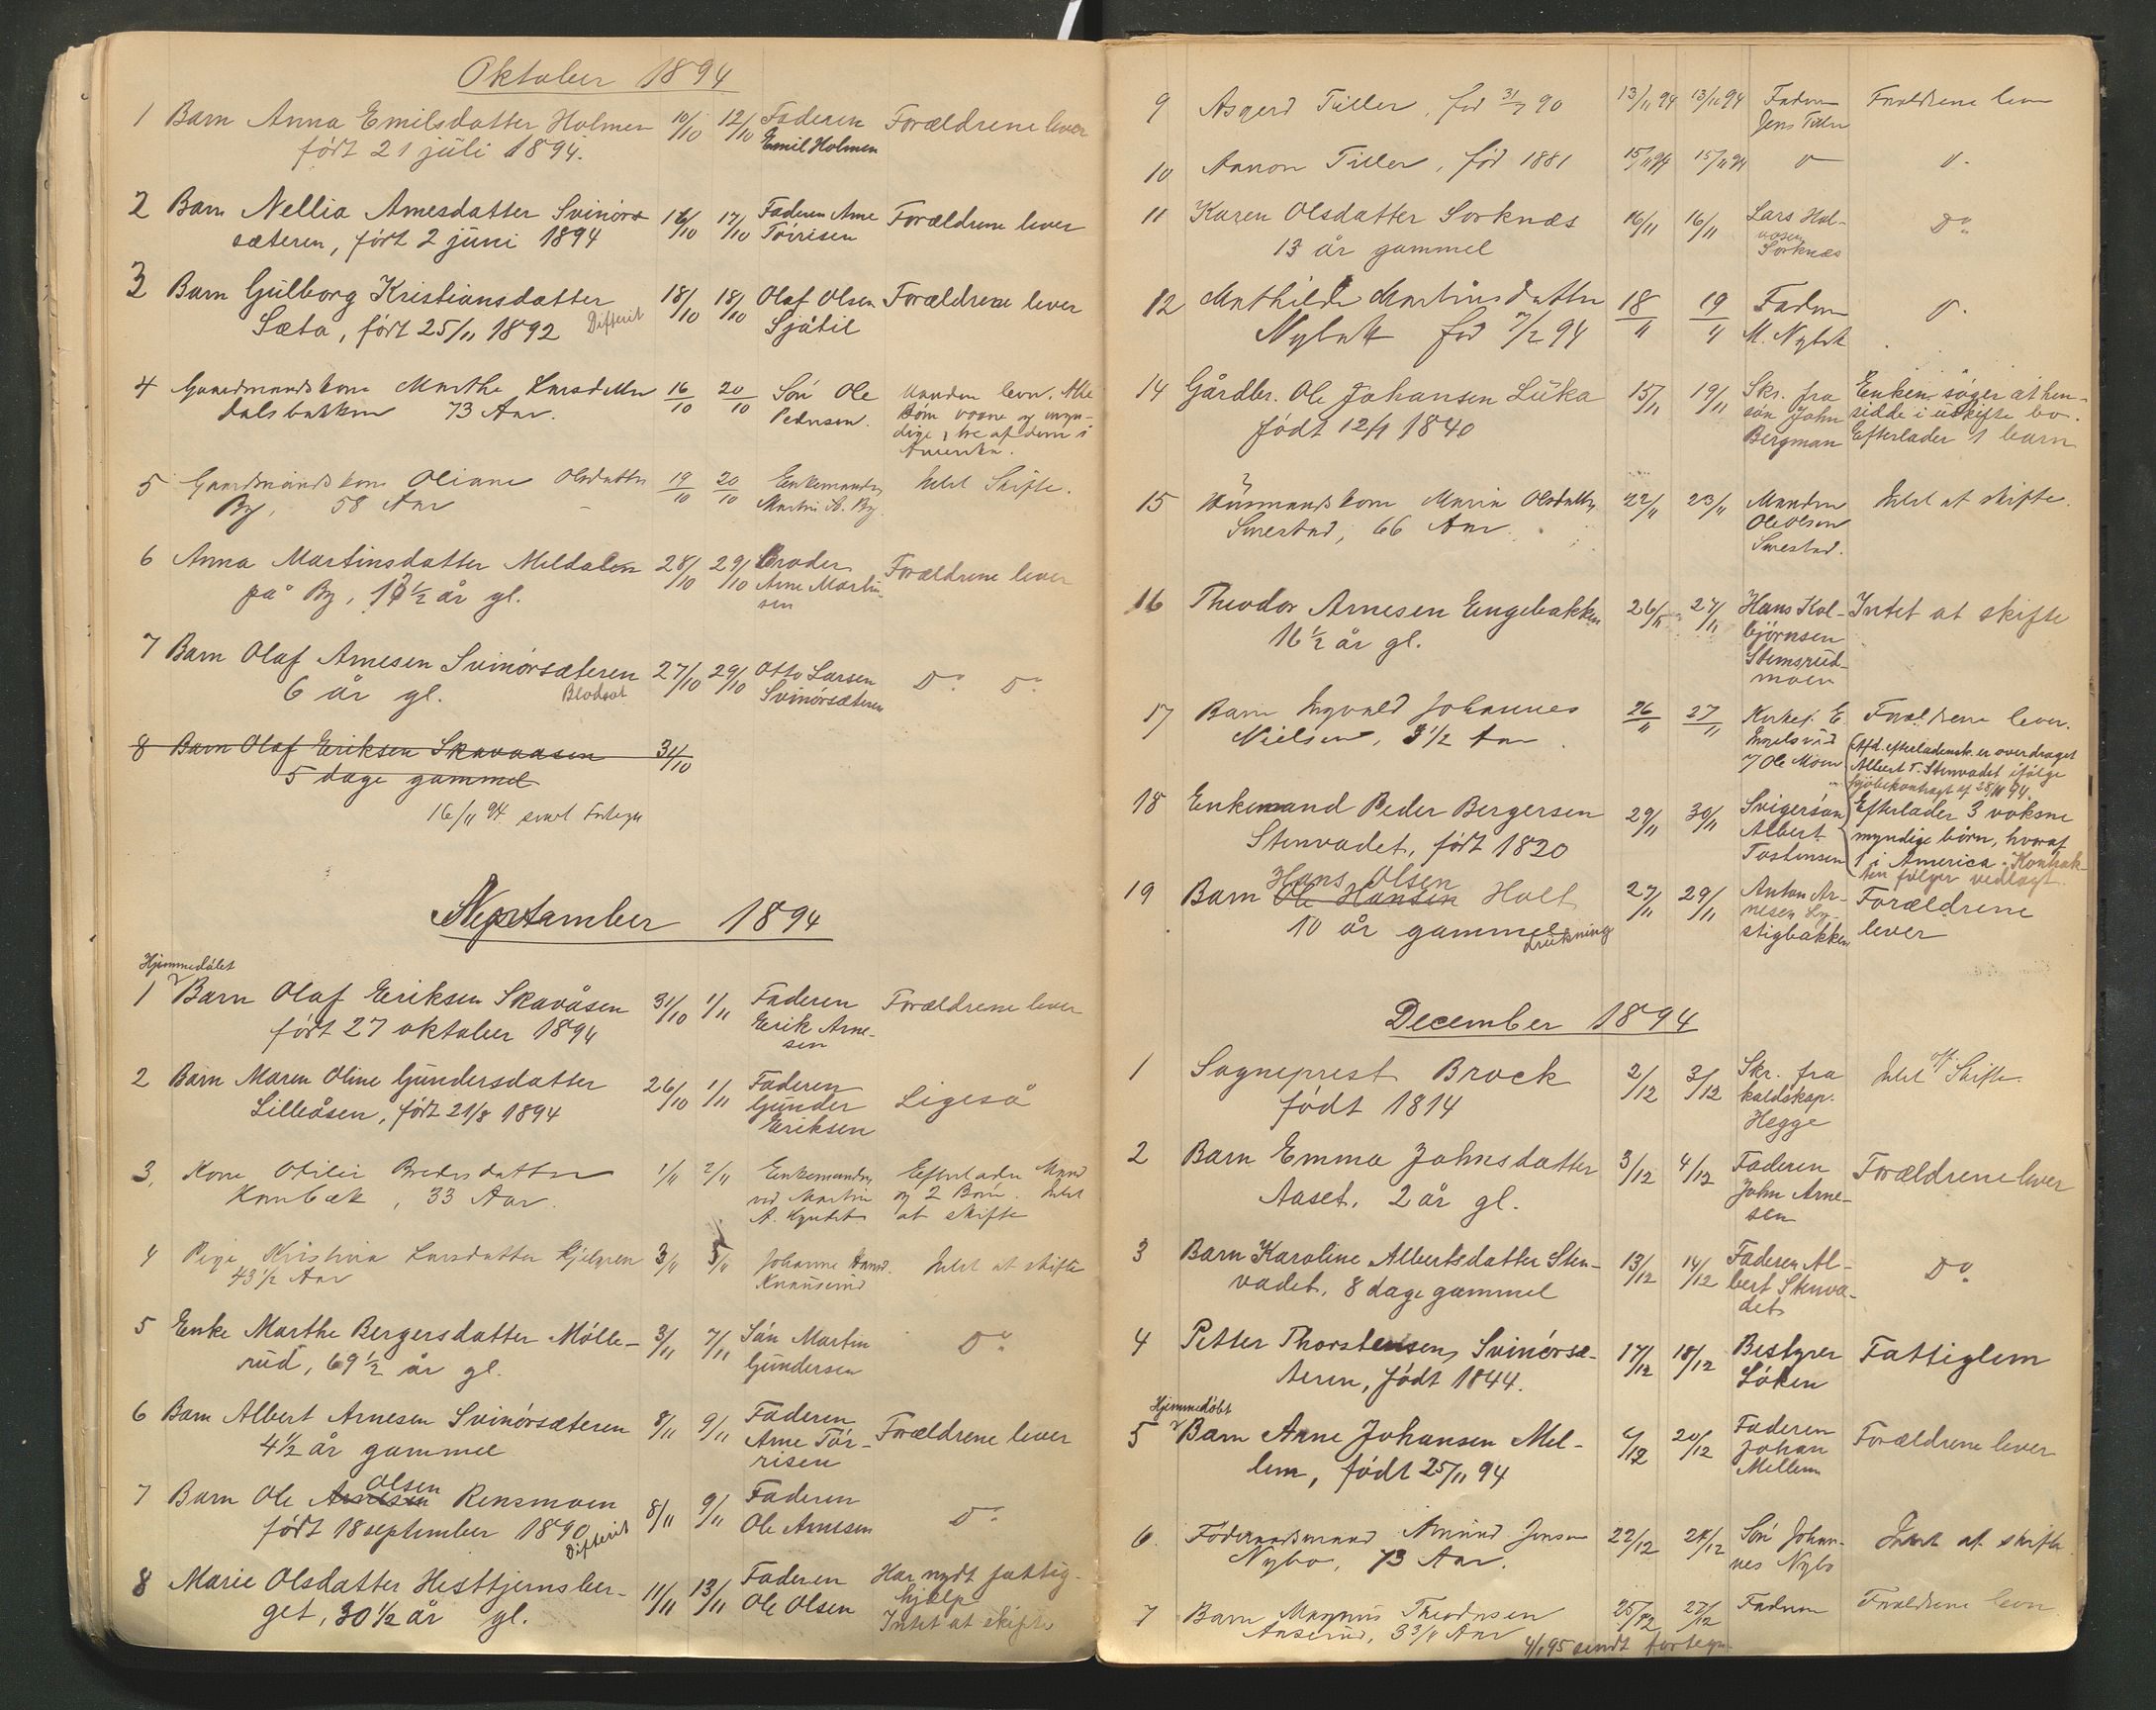 Oktober 1894
1 Barn Anna Emilsdatter Holmen 10/10 12/10 Faderen Forældrene lever
født 21 juli 1894. Emil Holmen
2 Barn Nellia Arnesdatter Svinørs 16/10 17/10 Faderen Arne Forældrene lever
sæteren, født 2 juni 1894 Törrisen
3 Barn Gulborg Kristiansdatter 18/10 18/10 Olaf Olsen Forældrene lever
Sæta, født 25/11 1892 Difterit Sjåtil
4 Gaardmandskone Marthe Larsdatter 16/10 20/10 Søn Ole Manden lever. Alle
Dalsbakken 73 Aar. Pedersen. Børn voxne og myn-
dige, tre af dem i
Amerika.
5 Gaardmandskone Oliane Olsdatter 19/10 20/10 Enkemanden Intet Skifte.
By, 58 Aar Martin A. By
6 Anna Martinsdatter Meldalen 28/10 29/10 Broder Forældrene lever
på By, 1 ½ år gl. Arne Martin-
sen
7 Barn Olaf Arnesen Svinørsæteren 27/10 29/10 Otto Larsen Do. Do.
6 år gl. Blodsot Svinørsæteren
8 Barn Olaf Eriksen Skavaasen 31/10
5 dage gammel
16/11 94 sendt Fortegn
November 1894
Hjemmedøbt
1 Barn Olaf Eriksen Skavåsen 31/10 1/11 Faderen Forældrene lever
født 27 oktober 1894 Erik Arne-
sen
2 Barn Maren Oline Gundersdatter 26/10 1/11 Faderen Ligeså
Lilleåsen, født 21/8 1894 Gunder
Eriksen
3, Kone Otilie Bredesdatter 1/11 2/11 Enkemanden Efterlader Mand
Kambæk, 33 Aar. ved Martin og 2 Børn. Intet
A. at skifte
4 Pige Kristine Larsdatter 3/11 5/11 Johanne Intet at skifte
43 1/2 Aar
5 Enke Marthe Bergersdatter Mölle- 3/11 7/11 Sön Martin Do.
rud, 69 ½ år gl. Gundersen
6 Barn Albert Arnesen Svinørsæteren 8/11 9/11 Faderen Forældrene lever
4½ år gammel Arne Tör-
risen
7 Barn Ole Arnesen Olsen Rensmoen 8/11 9/11 Faderen Do.
født 18 september 1890 Difterit Ole Arnesen
8 Marie Olsdatter Hesttjernsber- 11/11 13/11 Faderen Har nydt fattig-
get, 30½ år gl. Ole Olsen hjælp
Intet at skifte
9 Asgerd Tiller, fød 31/7 90 13/11 94 13/11 94 Faderen Forældrene lever
Jens Tiller
10 Annon Tiller, fød 1881 15/11 94 15/11 94
11 Karen Olsdatter Sorknæs 16/11 16/11 Lars Hal- Do.
13 år gammel vosen
Sorknæs
12 Mathilde Martinsdatter 18/11 19/11 Faderen
Nylæt fød 7/2 94 M. Nylæt
14 Gårdbr. Ole Johansen Lüka 15/11 19/11 Skr. fra Enken söger at hen-
født 12/1 1840 sön John sidde i uskifte bo.
Bergman Efterlader 1 barn
15 Husmandskone Maria Olsdatter 22/11 23/11 Manden Intet at skifte.
Smestad, 66 Aar. Ole Olsen
Smestad.
16 Theodor Arnesen Engebakken 26/11 27/11 Hans Kol- Intet at skifte
16 ½ år gl. björnsen
Stemsrud-
moen
17 Barn Ingvald Johannes 26/11 27/11 E. Forældrene lever.
Nielsen, 3 1/2 Aar.
Ole Moen (Afd. efterladensk. er overdraget
Albert T. Stenvadet ifølge
kjøbekontrakt af 28/11 94.
18 Enkemand Peder Bergersen 29/11 30/11 Svigersön Efterlader 3 voksne
Stenvadet, født 1820 Albert myndige börn, hvoraf
Tostensen 1 i America. Kontrak-
ten følger vedlagt.
19 Barn Ole Hansen Hans Olsen Holt 27/11 29/11 Anton Ar- Forældrene
10 år gammel Drukning nesen Ly-
stigbakken lever
December 1894
1 Sogneprest Brock 2/12 3/12 Skr. fra Intet Off. Skifte.
født 1814 kaldskap.
Hegge
2 Barn Emma Johnsdatter 3/12 4/12 Faderen Forældrene lever
Aaset, 2 år gl. John Arne-
sen
3 Barn Karoline Albertsdatter Sten- 13/12 14/12 Faderen Al- Do.
vadet, 8 dage gammel bert Stenva-
det
4 Petter Thorstensen Svinørsæ- 17/12 18/12 Bestyrer Fattiglem
teren, født 1844. Löken
Hjemmedøbt
5 Barn Arne Johansen Mel- 6/12 20/12 Faderen Forældrene lever
lem, født 25/11 94 Johan
Mellem
6. Föderaadsmand Amund Jensen 22/12 24/12 Sön Johan- Intet at skifte.
Nybo, 73 Aar. nes Nybo
7 Barn Magnus Theodorsen 25/12 27/12 Faderen Forældrene lever
Aaserud, 3 3/4 Aar
4/1 95 sendt fortegn.